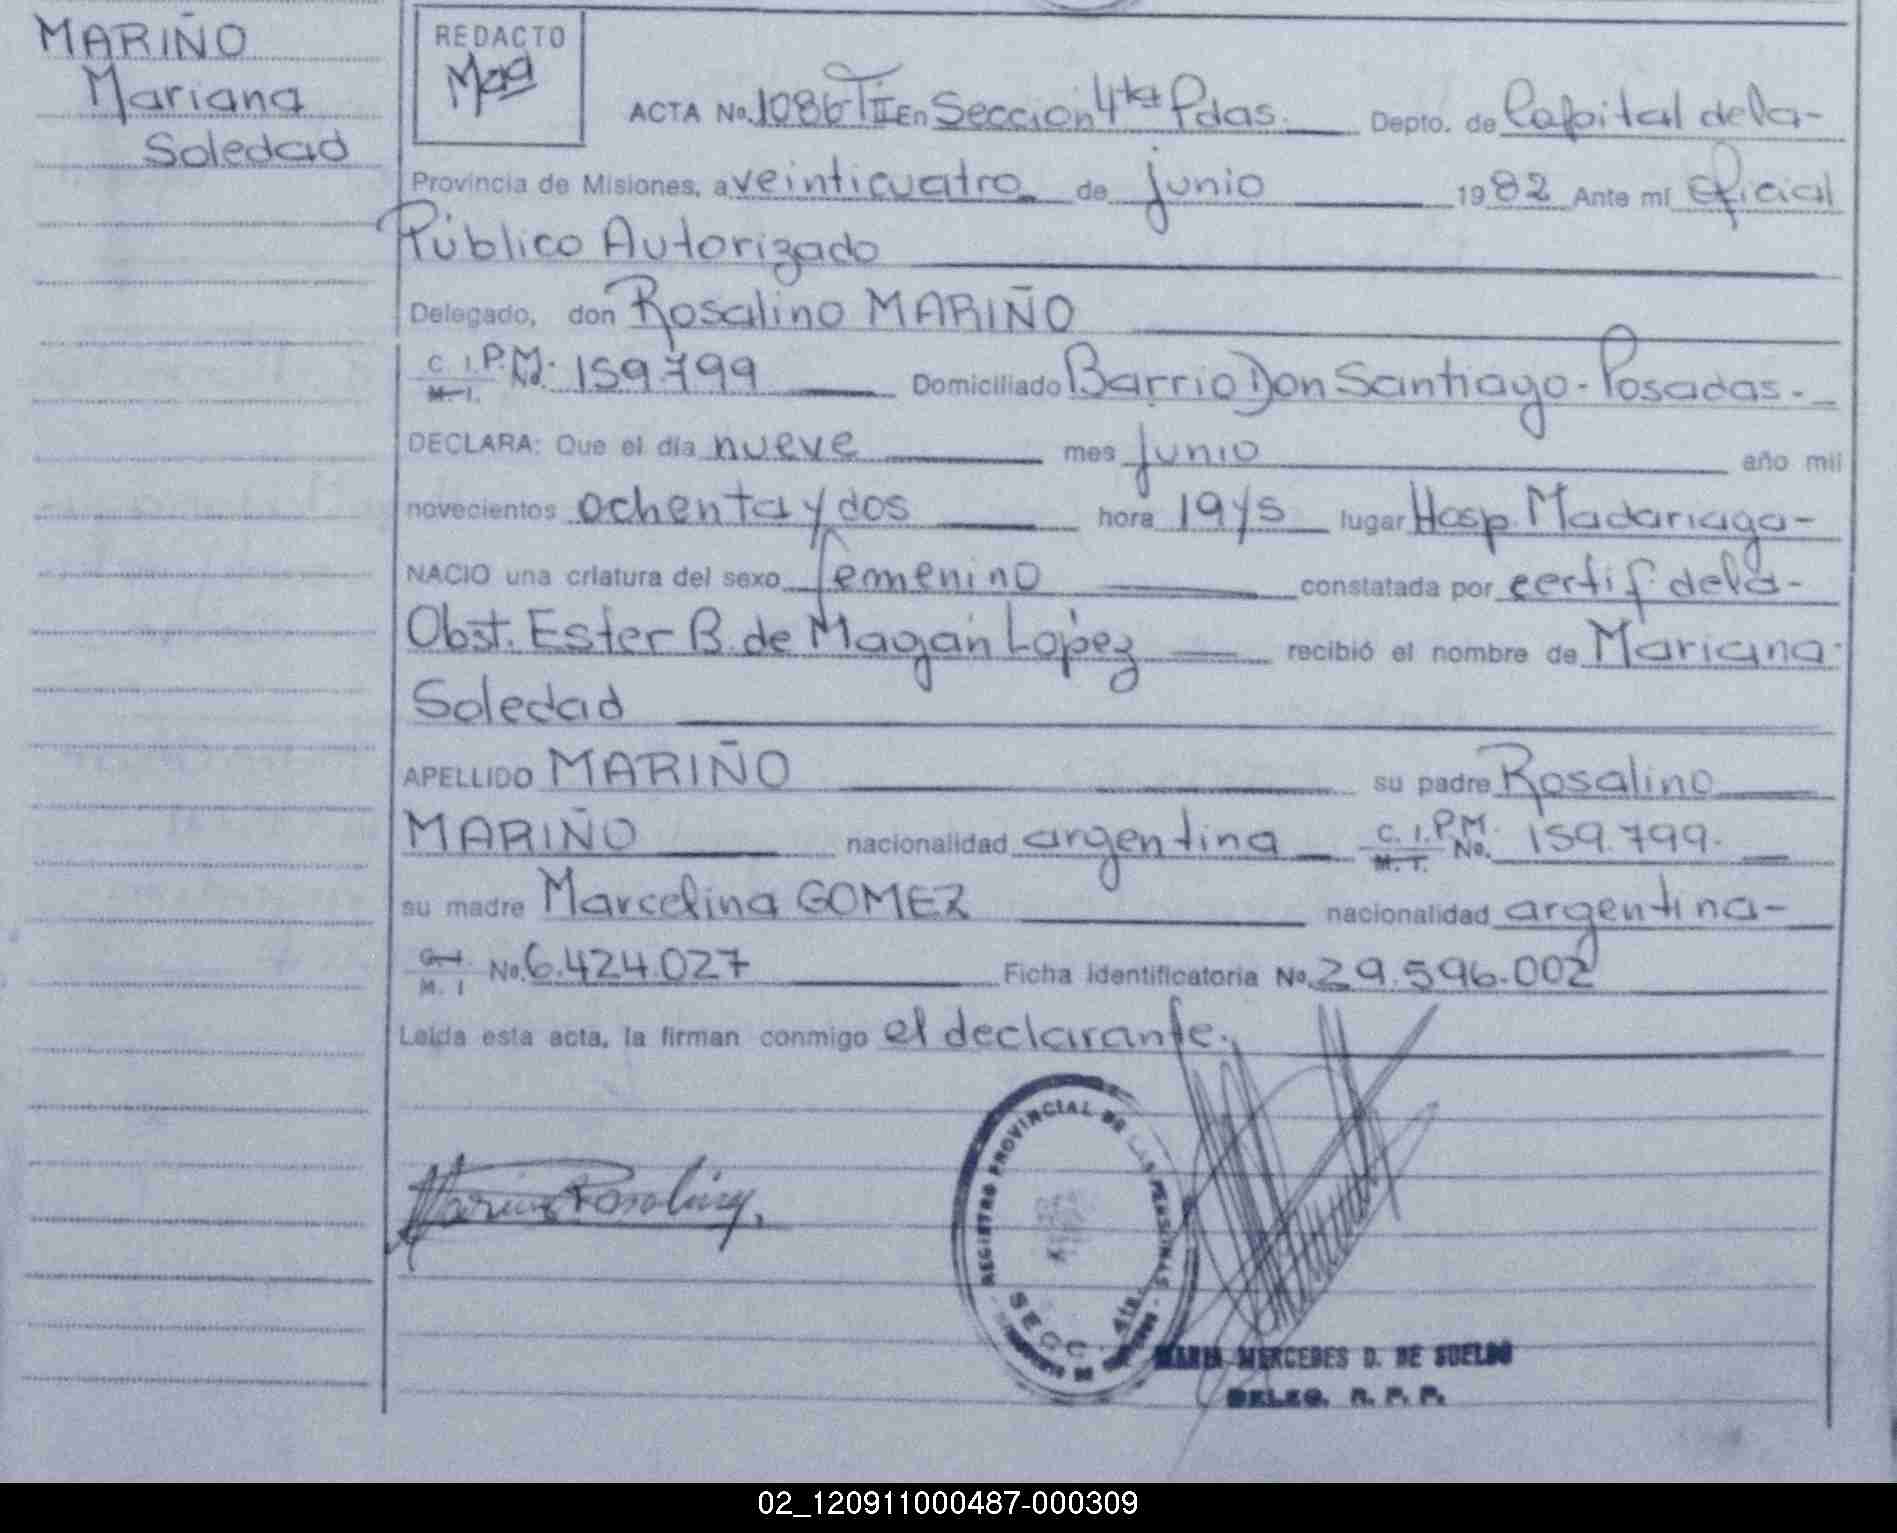 MARIÑO
Mariana
Soledad
REDACTO
ACTA No. 1086 TII En Sección 4ta Pdas. Depto. de Capital de la-
Provincia de Misiones, a veinticuatro de junio 1982 Ante mí Oficial
Público Autorizado
Delegado, don Rosalino MARIÑO
C. I. P.M. No. 159.799 Domiciliado Barrio Don Santiago - Posadas.-
M. I.
DECLARA: Que el día nueve mes junio año mil
novecientos ochenta y dos hora 19 y 5 lugar Hosp. Madariaga-
NACIO una criatura del sexo femenino constatada por certif. de la-
Obst. Ester B. de Magan López recibió el nombre de Mariana
Soledad
APELLIDO MARIÑO su padre Rosalino
MARIÑO nacionalidad argentina C. I. P.M. No. 159.799.
M. I.
su madre Marcelina GOMEZ nacionalidad argentina-
C. I. No. 6.424.027 Ficha Identificatoria No. 29.596.002
M. I
Leída esta acta, la firman conmigo el declarante.
Mariño Rosalino
REGISTRO PROVINCIAL DE LAS PERSONAS
SECC. 4ta.
MARIA MERCEDES D. DE SUELDO
DELEG. R. P. P.
02_120911000487-000309